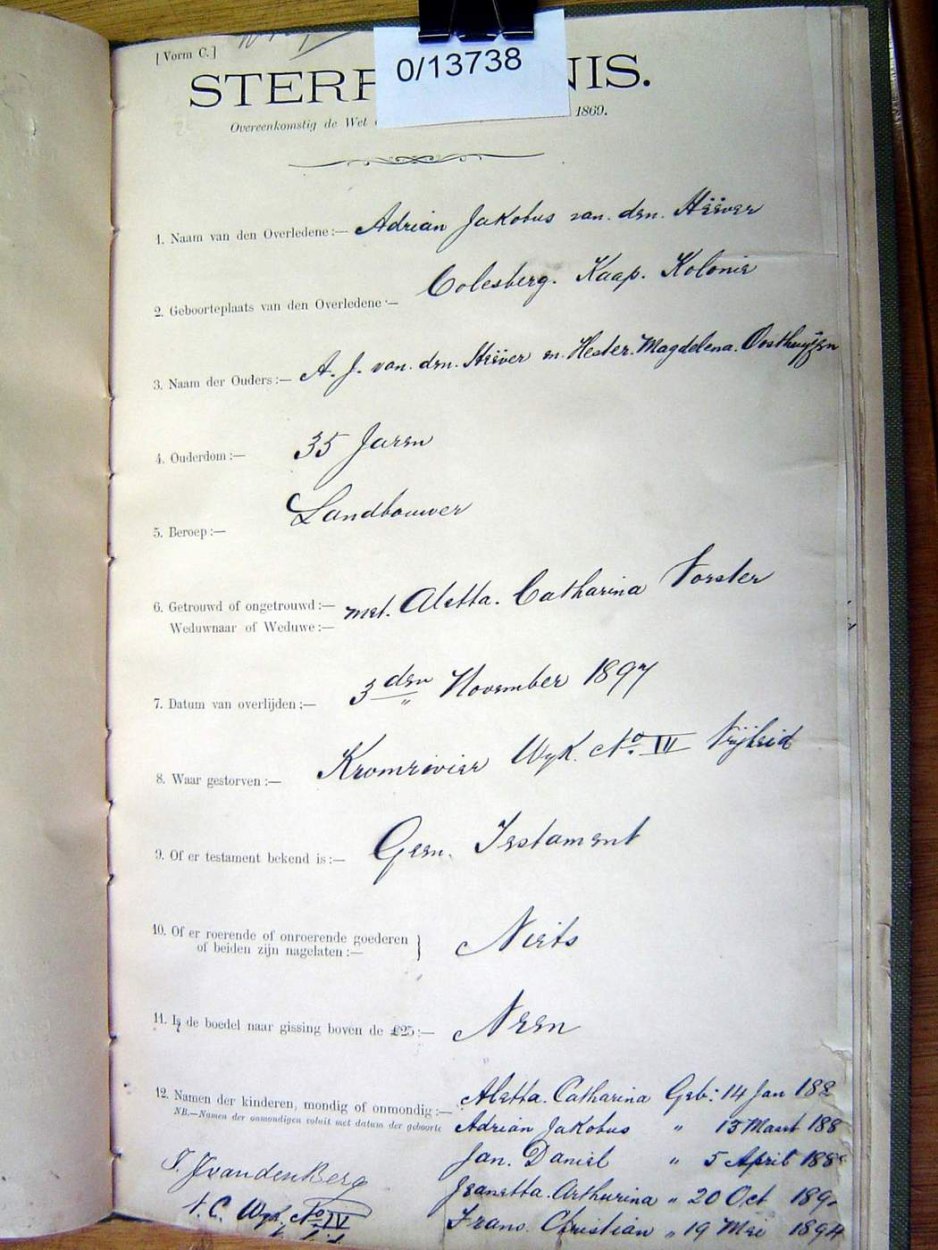 [Vorm C.]
0/13738
STERF NIS.
Overeenkomstig de Wet 1869.
1. Naam van den Overledene:— Adrian Jakobus van. den. Heever
2. Geboorteplaats van den Overledene:— Colesberg. Kaap. Kolonie
3. Naam der Ouders:— A. J. van. den. Heever en. Hester. Magdelena. Oosthuyzen
4. Ouderdom:— 35 Jaren
5. Beroep:— Landbouwer
6. Getrouwd of ongetrouwd:— met. Aletta. Catharina Vorster
Weduwnaar of Weduwe:—
7. Datum van overlijden:— 3 den November 1897
8. Waar gestorven:— Kromrivier Wyk. No. IV Vrijheid
9. Of er testament bekend is:— Geen. Testament
10. Of er roerende of onroerende goederen
of beiden zijn nagelaten:— } Niets
11. Is de boedel naar gissing boven de £25:— Neen
12. Namen der kinderen, mondig of onmondig:— Aletta. Catharina Geb: 14 Jan 188
NB.—Namen der onmondigen voluit met datum der geboorte Adrian Jakobus " 13 Maart 188
Jan. Daniel " 5 April 188
Jeanetta. Arthurina " 20 Oct 189
Frans. Christian " 19 Mei 1894
J. J vandenBerg
V. C. Wyk. No IV